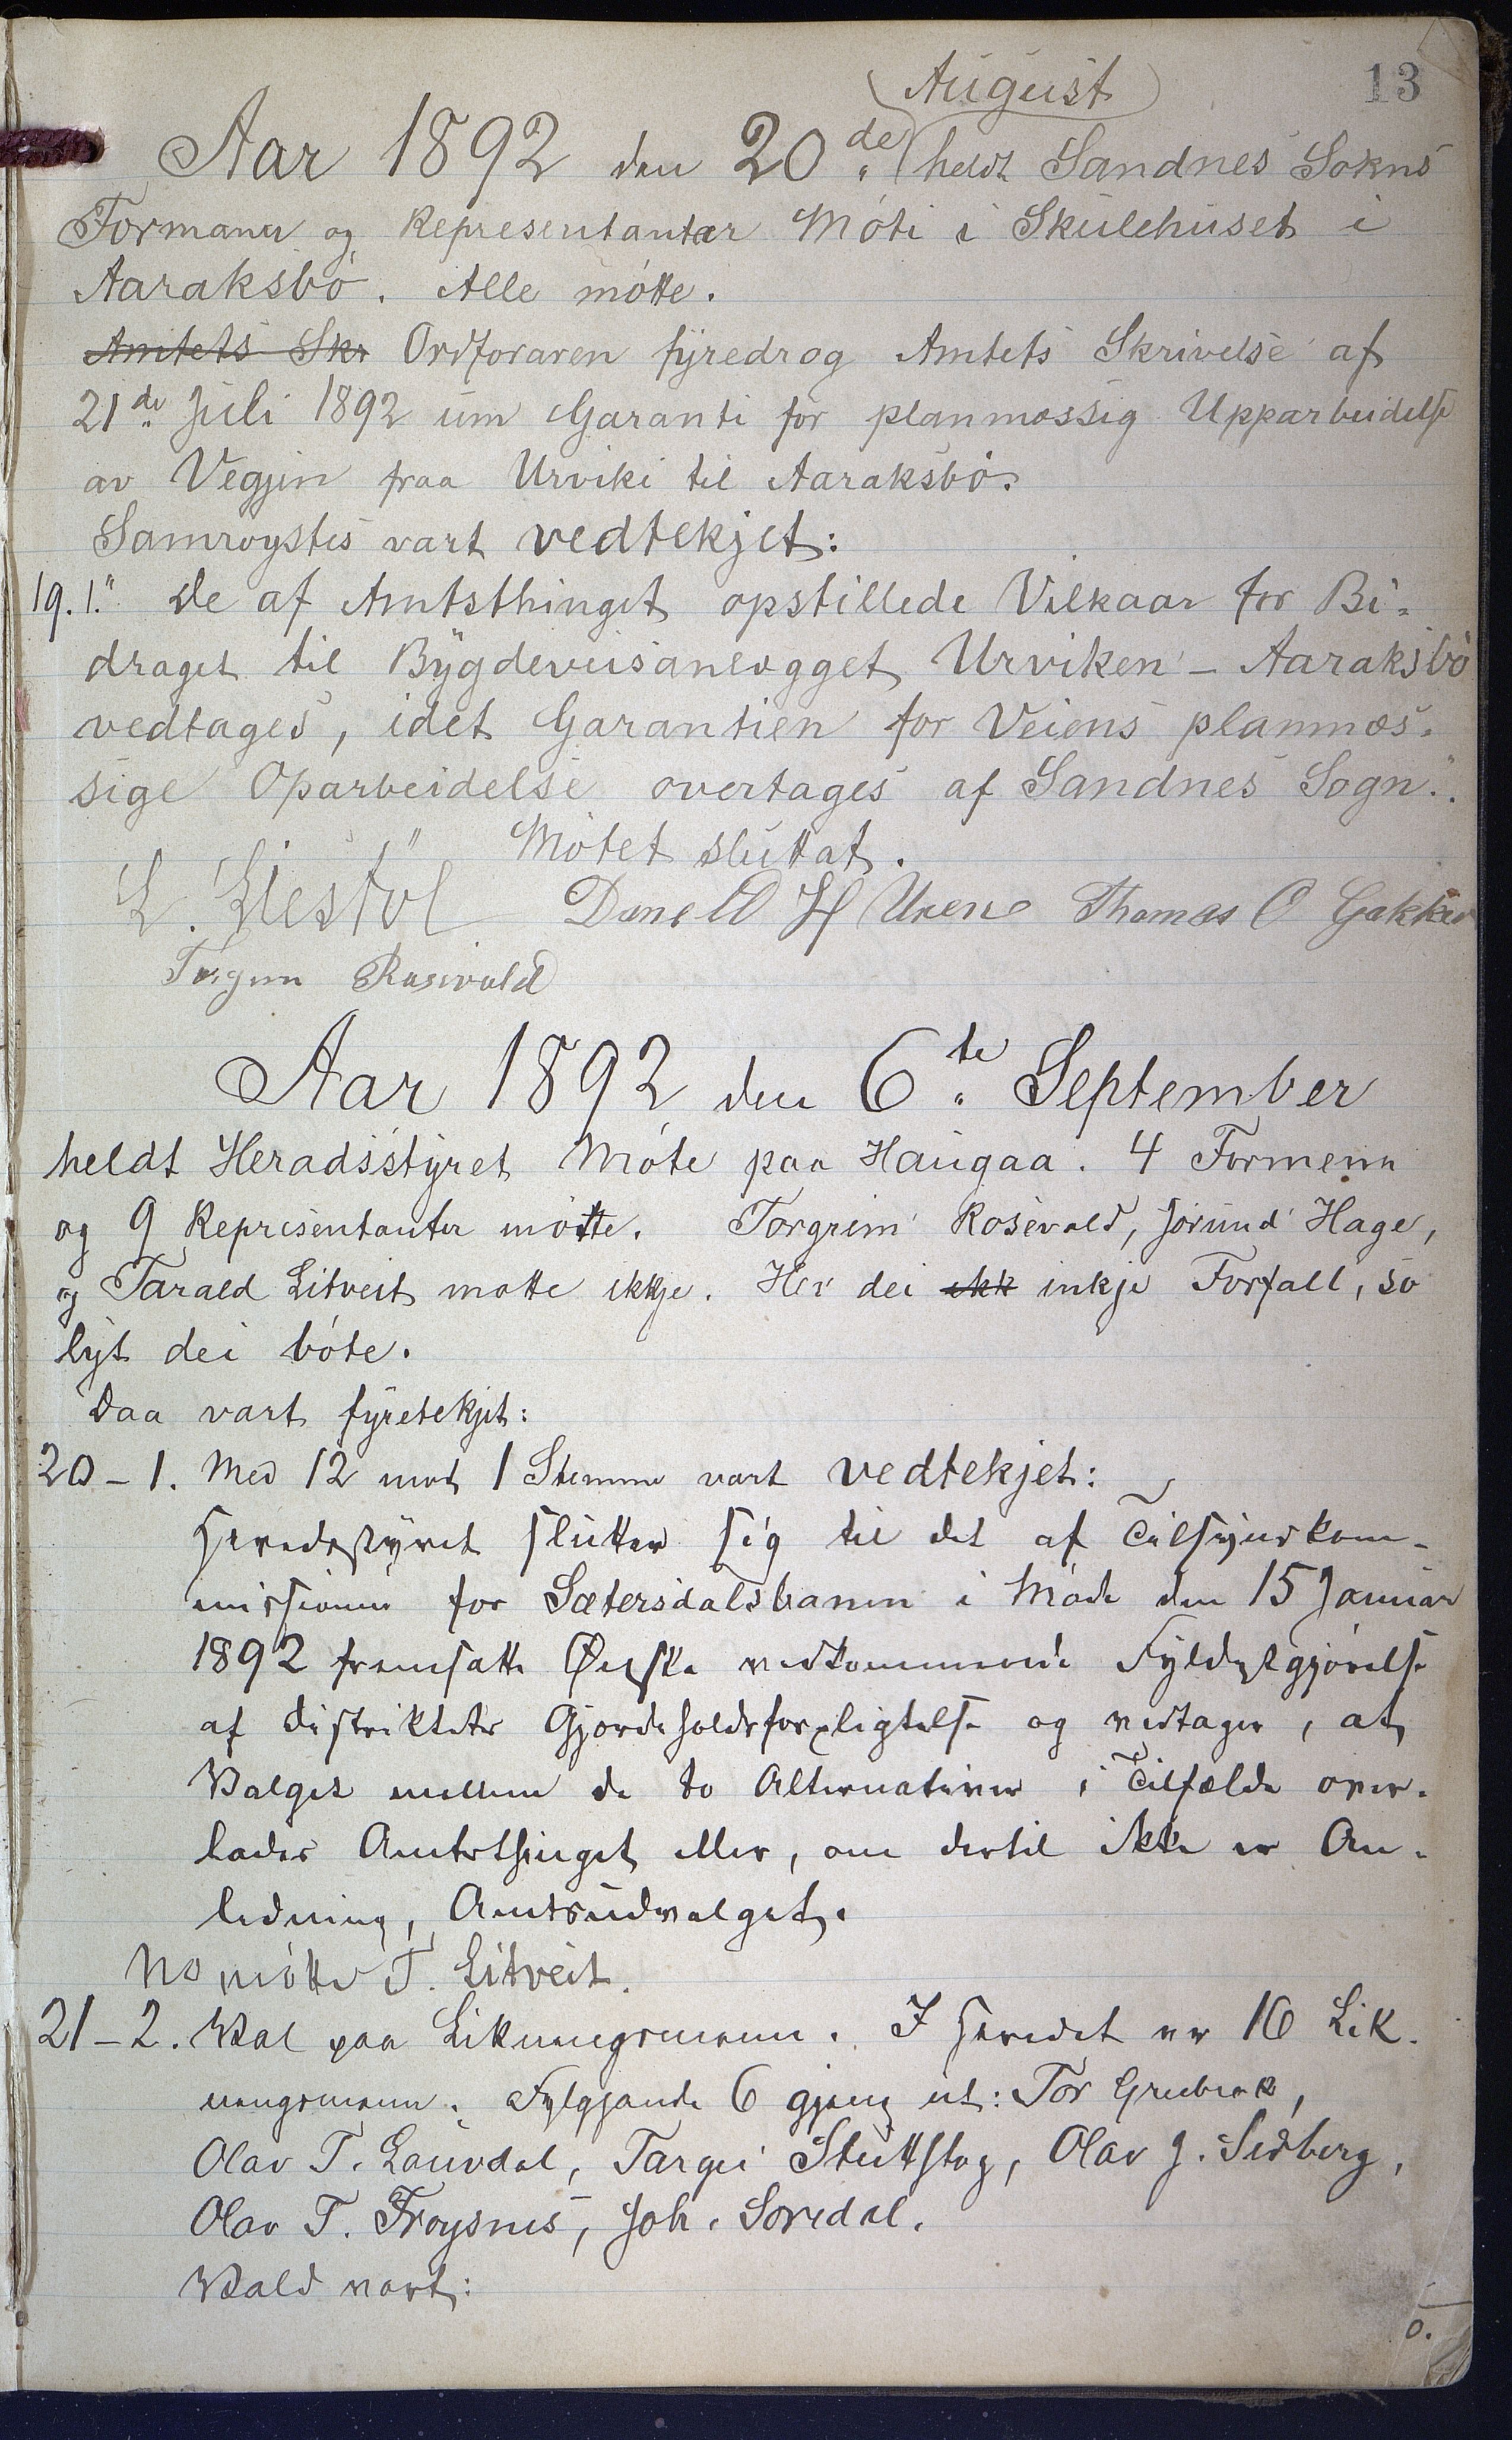 13
August
Aar 1892 den 20de heldt Sandnes Sokns
Formenn og Representantar Móti i Skulehuset i
Aaraksbó. Alle mótte.
Amtets Skr Ordforaren fyredrog Amtets Skrivelse af
21de Juli 1892 um Garanti for planmæssig Upparbeidelse
av Vegjin fraa Urviki til Aaraksbó.
Samroystes vart vedtekjet:
19. 1. "De af Amtsthinget opstillede Vilkaar for Bi-
draget til Bygdeveisanlægget Urviken - Aaraksbó
vedtages, idet Garantien for Veiens planmæs-
sige Oparbeidelse overtages af Sandnes Sogn."
Mótet sluttat.
L. Liestöl
Thomas O
Rosevold
Aar 1892 den 6te September
heldt Heradsstyret Móte paa Haugaa. 4 Formenn
og 9 Representanter mótte. Torgrim Rosevold, Jórund Hage,
og Tarald Litveit motte ikkje. Hev dei ikk inkje Forfall, so
lyt dei bóte.
Daa vart fyretekjet:
20 - 1. Med 12 mot 1 Stemme vart vedtekjet:
Heredsstyret slutter sig til det af Tilsynskom-
missionen for Sætersdalsbanen i Móde den 15 Januar
1892 fremsatte Ønske vedkommende Fyldestgjórelse
af Distriktets Gjerdeholdsforpligtelse og vedtager, at
Valget mellem de to Alternativer i Tilfælde over-
lades Amtsthinget eller, om dertil ikke er An-
ledning, Amtsudvalget.
No mótte T. Litveit.
21 - 2. Val paa Likningsmenn. I Heredet er 16 Lik-
ningsmenn. Fylgjande 6 gjeng ut: Tor Grubrok,
Olav T. Lauvdal, Targei Stuttstog, Olav J. Sedberg,
Olav T. Froysnes, Joh. Soredal.
Vald vart: